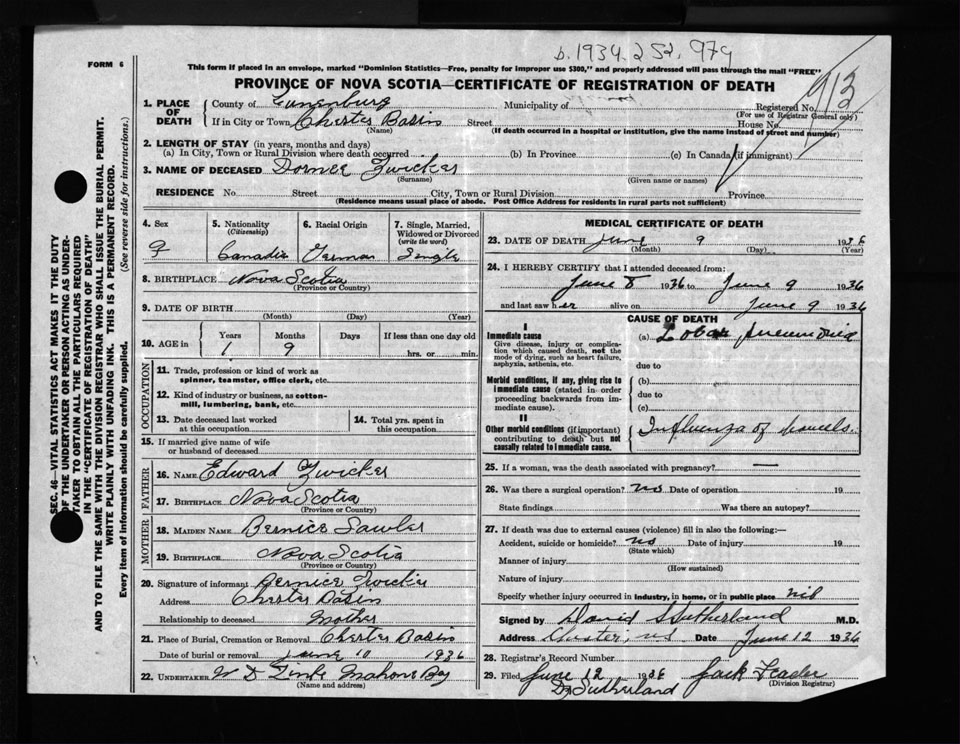 b. 1934. 252. 979
FORM 6
This form if placed in an envelope, marked "Dominion Statistics—Free, penalty for improper use $300," and properly addressed will pass through the mail "FREE"
PROVINCE OF NOVA SCOTIA—CERTIFICATE OF REGISTRATION OF DEATH
913
1. PLACE OF DEATH
County of Lunenburg Municipality of Registered No.
(For use of Registrar General only)
If in City or Town Chester Basin Street House No.
(Name) (If death occurred in a hospital or institution, give the name instead of street and number)
2. LENGTH OF STAY (in years, months and days)
(a) In City, Town or Rural Division where death occurred (b) In Province (c) In Canada (if immigrant)
3. NAME OF DECEASED Zwicker
(Surname) (Given name or names)
RESIDENCE No. Street City, Town or Rural Division Province
(Residence means usual place of abode. Post Office Address for residents in rural parts not sufficient)
4. Sex
5. Nationality (Citizenship) Canadia
6. Racial Origin German
7. Single, Married, Widowed or Divorced (write the word) Single
8. BIRTHPLACE Nova Scotia
(Province or Country)
9. DATE OF BIRTH
(Month) (Day) (Year)
10. AGE in Years Months Days If less than one day old
1 9 hrs. or min.
OCCUPATION
11. Trade, profession or kind of work as spinner, teamster, office clerk, etc.
12. Kind of industry or business, as cotton-mill, lumbering, bank, etc.
13. Date deceased last worked at this occupation
14. Total yrs. spent in this occupation
15. If married give name of wife or husband of deceased
FATHER
16. NAME Edward Zwicker
17. BIRTHPLACE Nova Scotia
(Province or Country)
MOTHER
18. MAIDEN NAME Bernice Sawler
19. BIRTHPLACE Nova Scotia
(Province or Country)
20. Signature of informant Bernice Zwicker
Address Chester Basin
Relationship to deceased Mother
21. Place of Burial, Cremation or Removal Chester Basin
Date of burial or removal June 10 1936
22. UNDERTAKER W D Mahone Bay
(Name and address)
MEDICAL CERTIFICATE OF DEATH
23. DATE OF DEATH June 9 1936
(Month) (Day) (Year)
24. I HEREBY CERTIFY that I attended deceased from:
June 8 1936 to June 9 1936
and last saw her alive on June 9 1936
CAUSE OF DEATH
I
Immediate cause
Give disease, injury or complication which caused death, not the mode of dying, such as heart failure, asphyxia, asthenia, etc.
(a) Lobar pneumonia
due to
Morbid conditions, if any, giving rise to immediate cause (stated in order proceeding backwards from immediate cause).
(b)
due to
(c)
II
Other morbid conditions (if important) contributing to death but not causally related to immediate cause.
Influenza of bowels.
25. If a woman, was the death associated with pregnancy? —
26. Was there a surgical operation? no Date of operation 19
State findings Was there an autopsy?
27. If death was due to external causes (violence) fill in also the following:—
Accident, suicide or homicide? no Date of injury 19
(State which)
Manner of injury
(How sustained)
Nature of injury
Specify whether injury occurred in industry, in home, or in public place nil
Signed by David S Sutherland M.D.
Address Chester, NS Date June 12 1936
28. Registrar's Record Number
29. Filed June 12 1936 Jack
(Division Registrar)
D Sutherland
SEC. 46—VITAL STATISTICS ACT MAKES IT THE DUTY
OF THE UNDERTAKER OR PERSON ACTING AS UNDER-
TAKER TO OBTAIN ALL THE PARTICULARS REQUIRED
IN THE "CERTIFICATE OF REGISTRATION OF DEATH"
AND TO FILE THE SAME WITH THE DIVISION REGISTRAR WHO SHALL ISSUE THE BURIAL PERMIT.
WRITE PLAINLY WITH UNFADING INK. THIS IS A PERMANENT RECORD.
Every item of information should be carefully supplied. (See reverse side for instructions.)